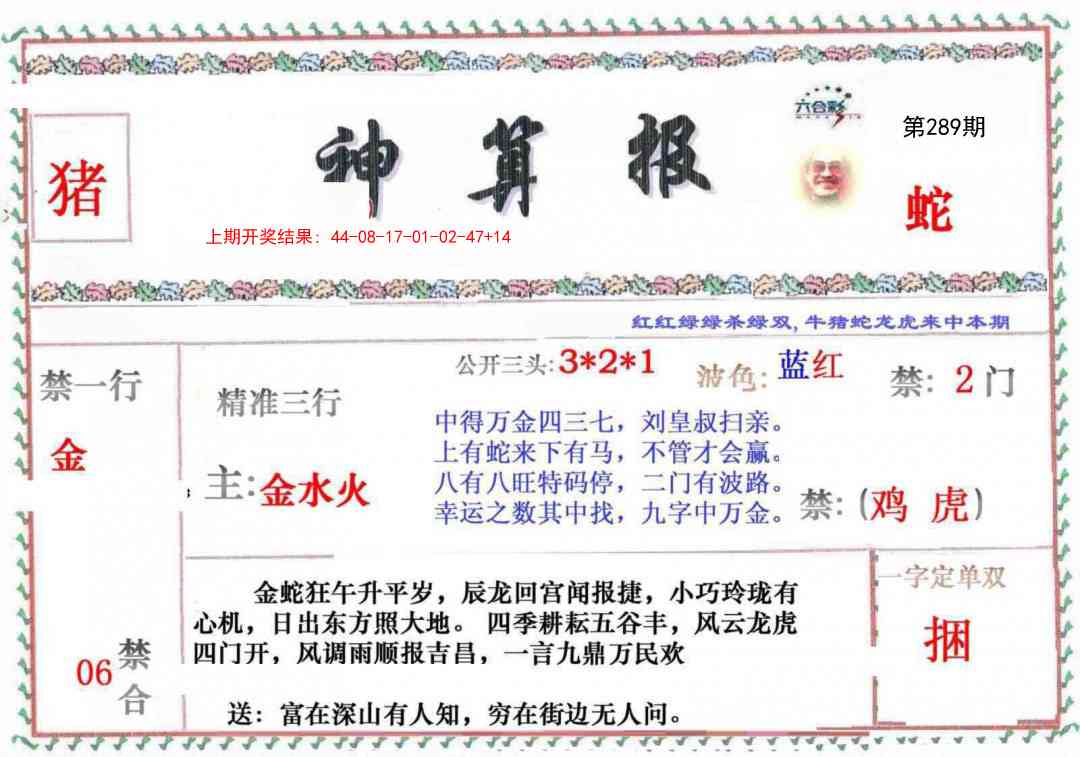 六合彩
第289期
猪
神算报
蛇
上期开奖结果：44-08-17-01-02-47+14
红红绿绿杀绿双,牛猪蛇龙虎来中本期
禁一行
金
精准三行
主:金水火
公开三头:3*2*1
波色:蓝红
禁:2门
中得万金四三七，刘皇叔扫亲。
上有蛇来下有马，不管才会赢。
八有八旺特码停，二门有波路。
幸运之数其中找，九字中万金。
禁:(鸡 虎)
金蛇狂午升平岁，辰龙回宫闻报捷，小巧玲珑有
心机，日出东方照大地。 四季耕耘五谷丰，风云龙虎
四门开，风调雨顺报吉昌，一言九鼎万民欢
送：富在深山有人知，穷在街边无人问。
06禁合
一字定单双
捆